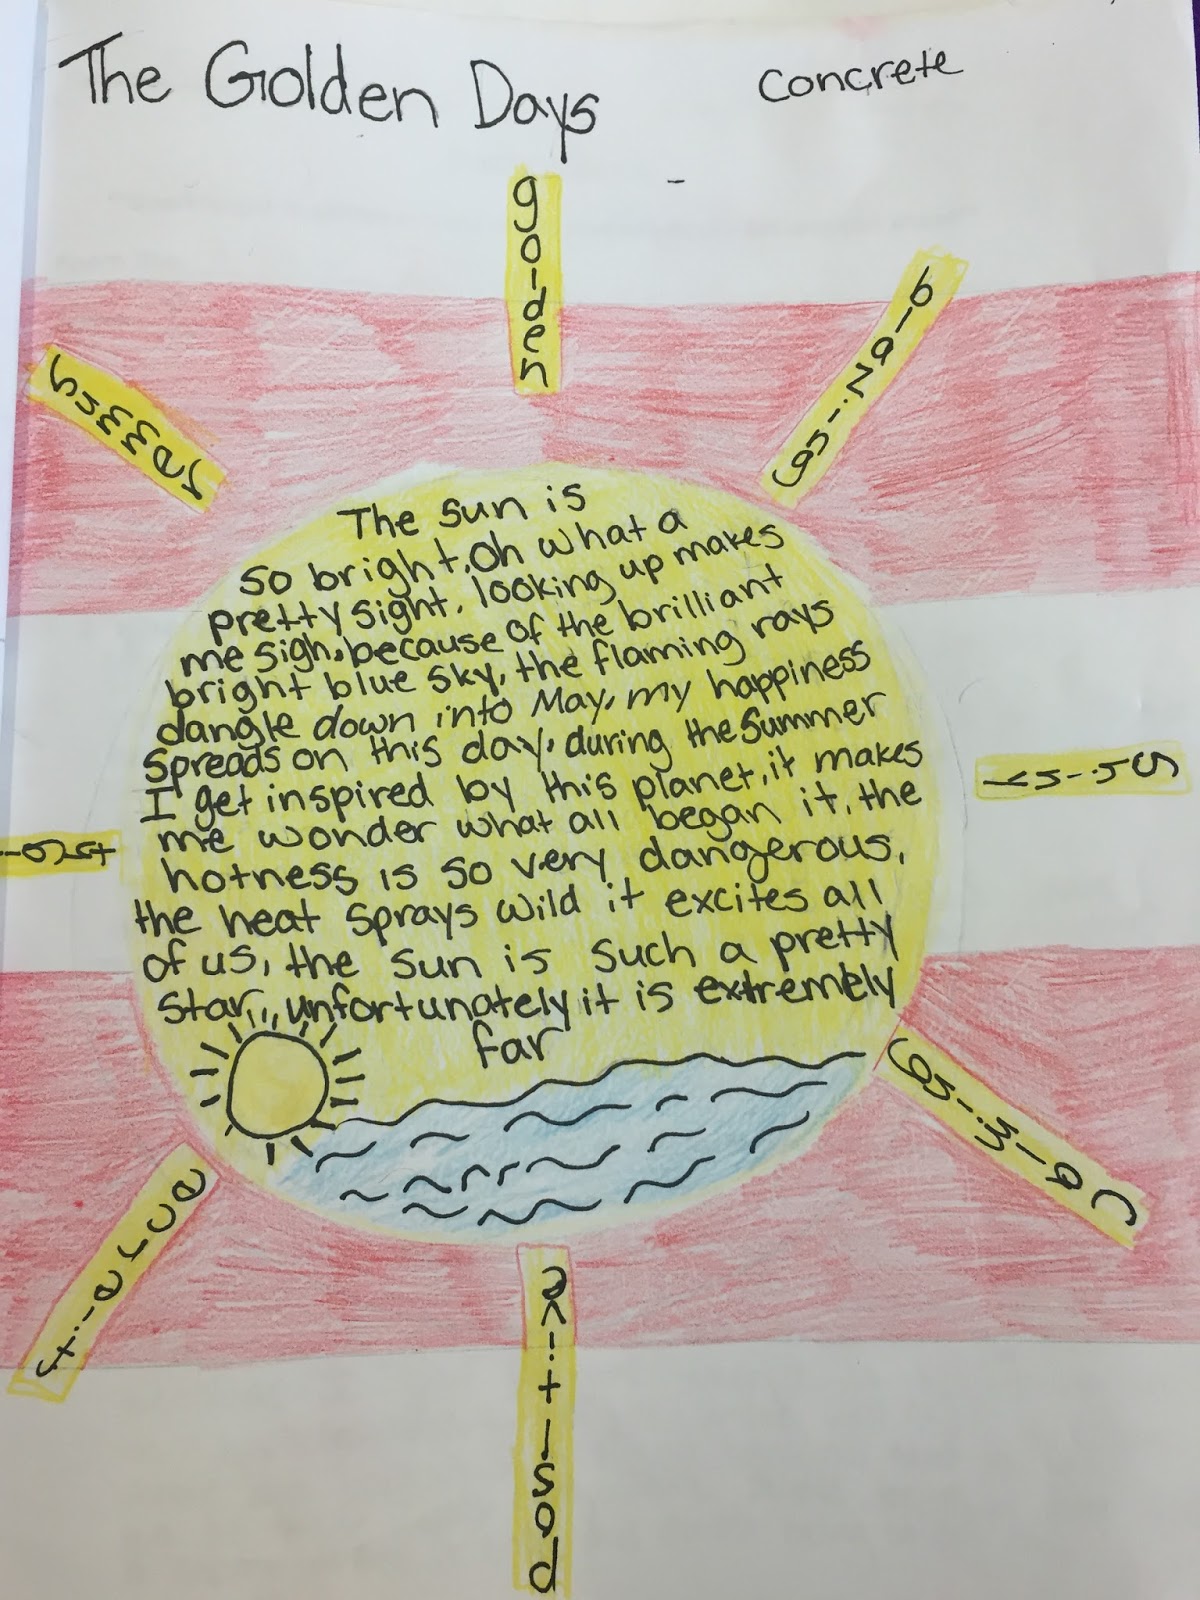 The Golden Days
Concrete
golden
blazing
summer
The sun is
so bright, oh what a
pretty sight, looking up makes
me sigh, because of the brilliant
bright blue sky, the flaming rays
dangle down into May, my happiness
spreads on this day, during the summer
I get inspired by this planet, it makes
me wonder what all began it, the
hotness is so very dangerous,
the heat sprays wild it excites all
of us, the sun is such a pretty
star,,, unfortunately it is extremely
far
calming
fierce
positive